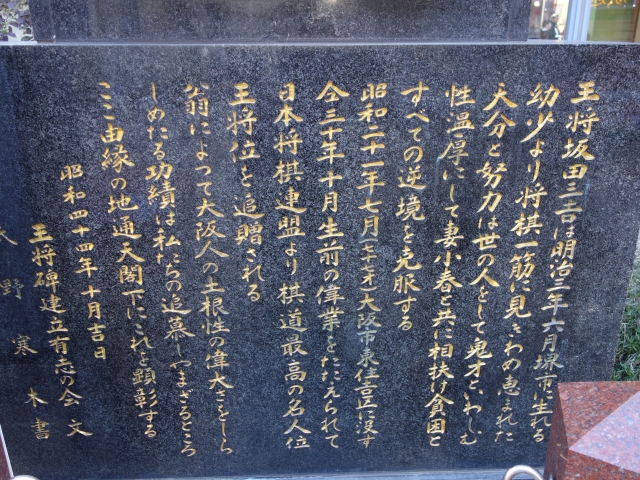 王将坂田三吉は明治三年六月堺市に生れる
幼少より将棋一筋に見きわめ恵まれた
天分と努力は世の人をして鬼才といわしむ
性温厚にして妻小春と共に相扶け貧困と
すべての逆境を克服する
昭和二十一年七月(七十七才)大阪市東住吉区に没す
仝三十年十月生前の偉業をたたえられて
日本将棋連盟より棋道最高の名人位
王将位を追贈される
翁によって大阪人の土根性の偉大さをしら
しめたる功績は私たちの追慕しやまざるところ
ここ由縁の地通天閣下にこれを顕彰する
昭和四十四年十月吉日
王将碑建立有志の会 文
野寒木書